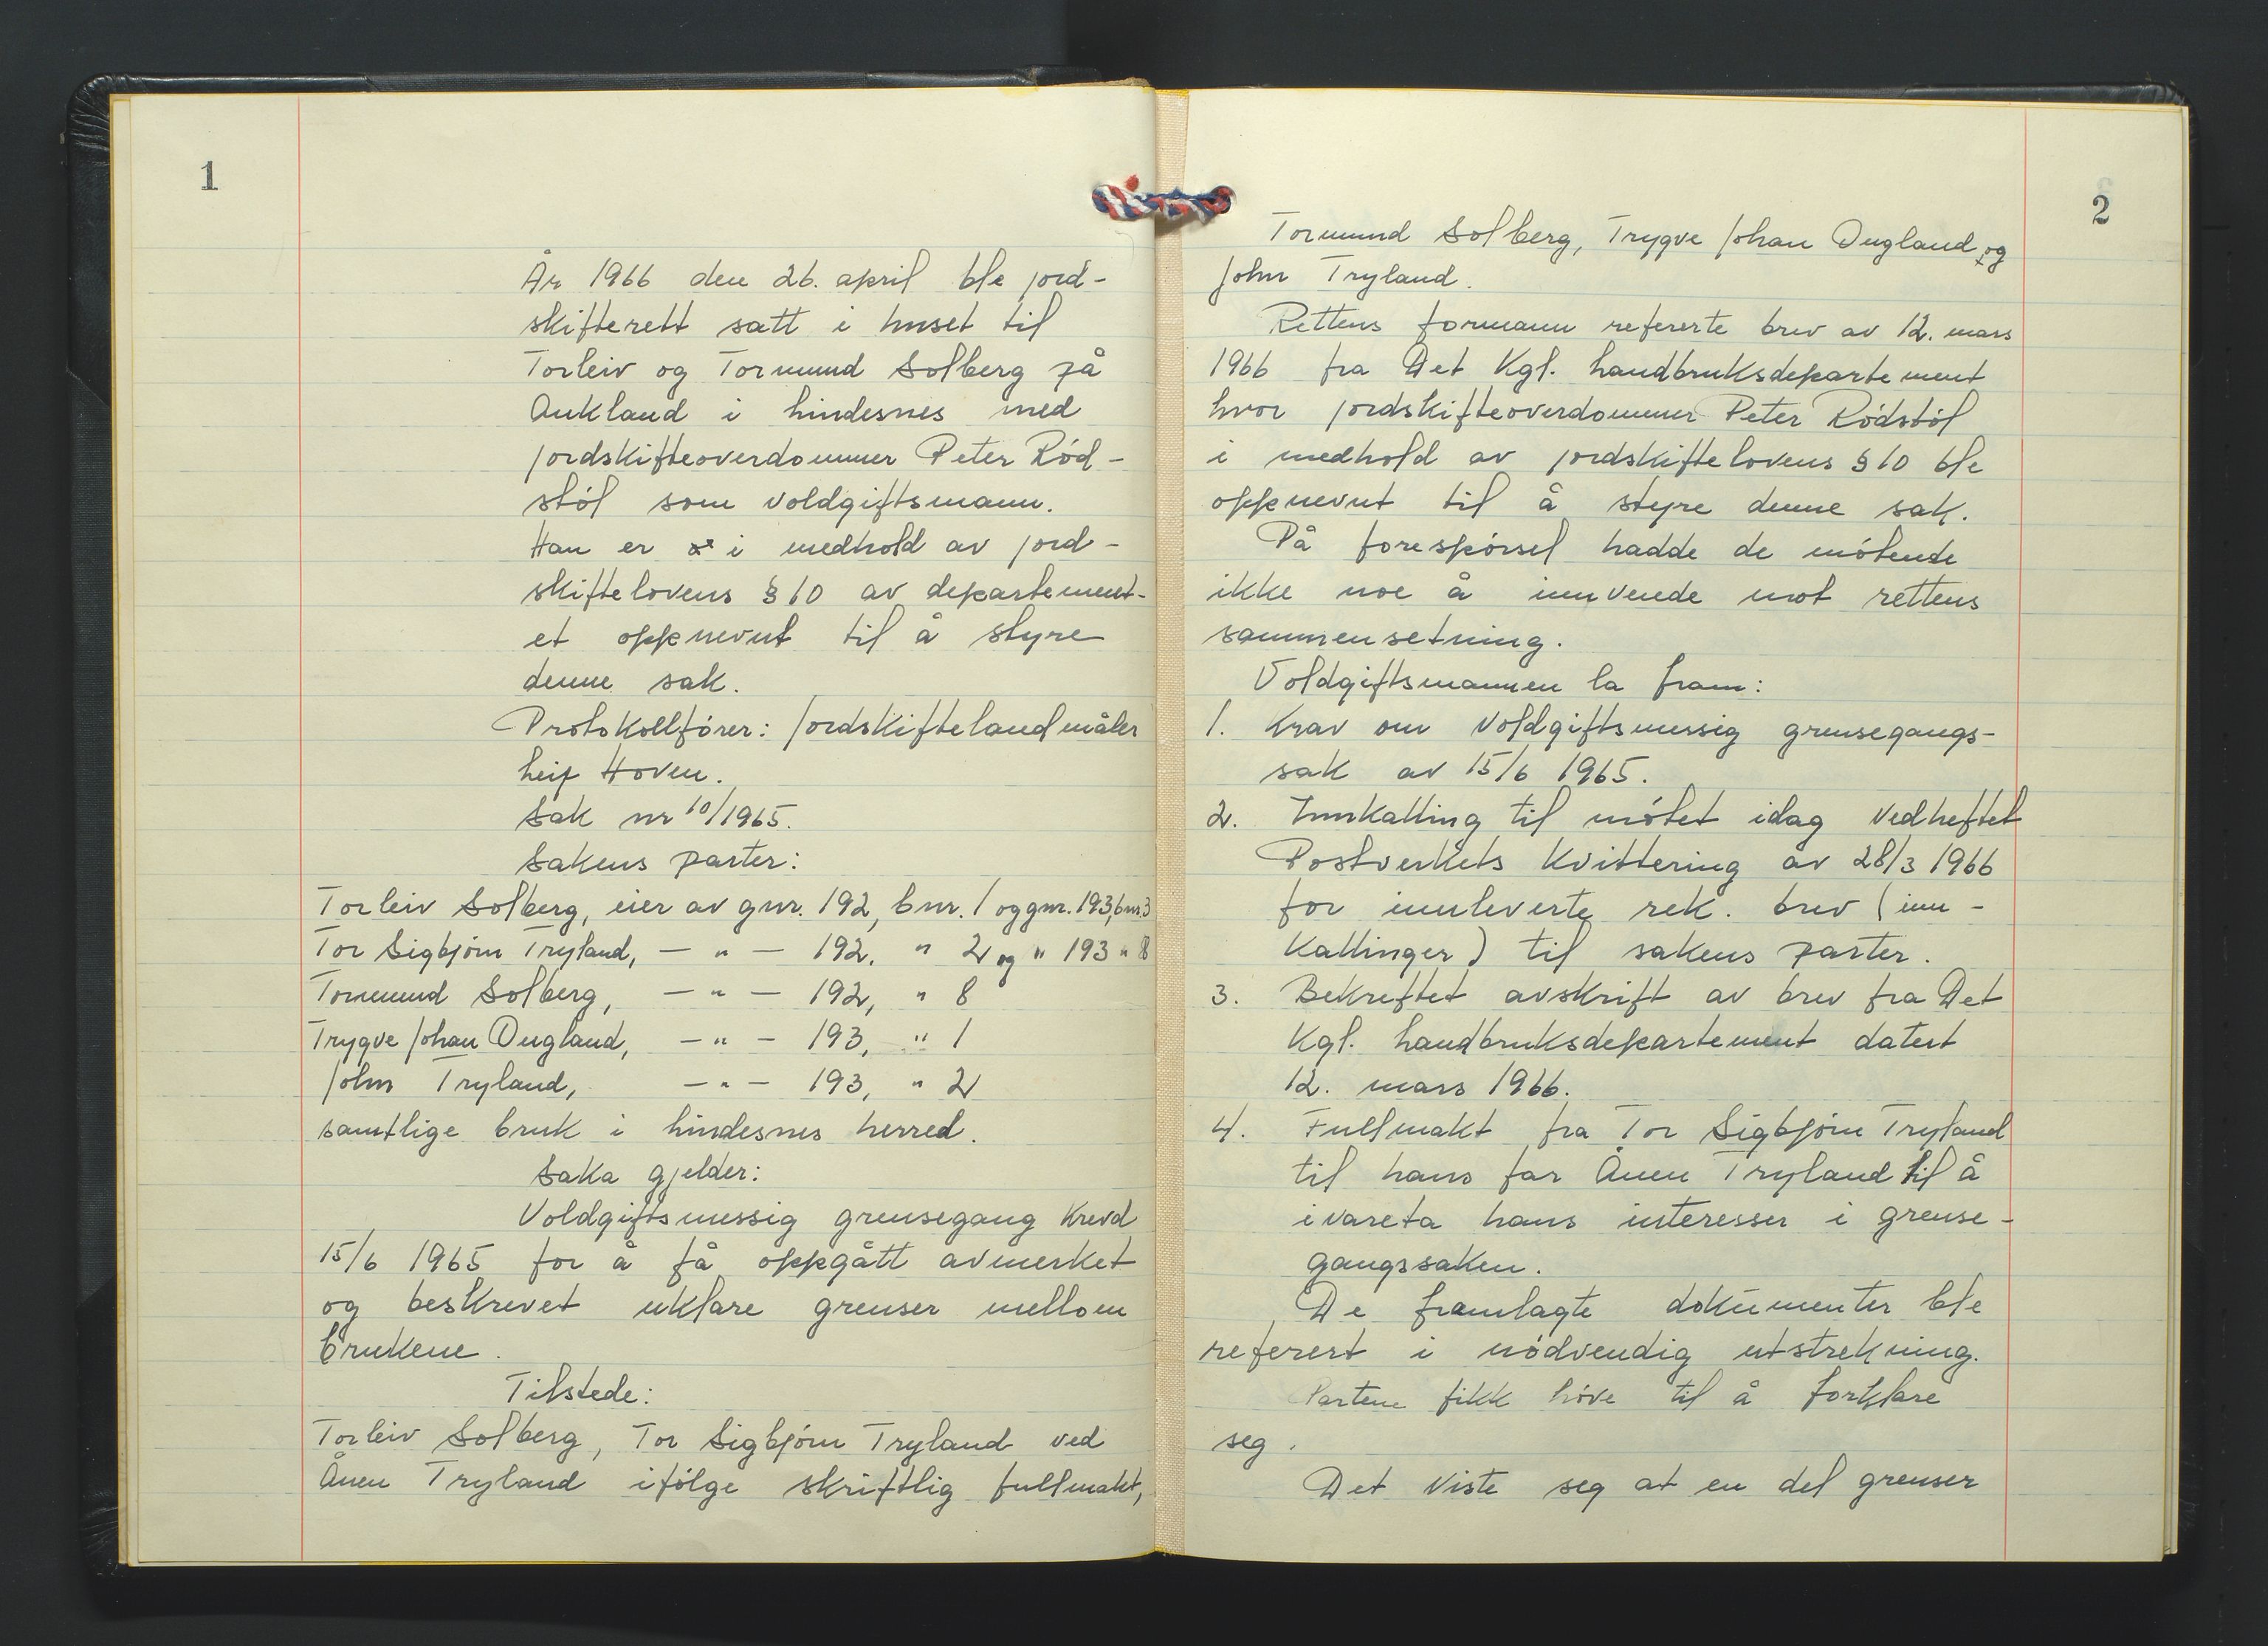 1
År 1966 den 26. april ble jord-
skifterett satt i huset til
Torleiv og Tormund Solberg på
Aukland i Lindesnes med
jordskifteoverdommer Peter Rød-
støl som voldgiftsmann.
Han er i medhold av jord-
skiftelovens § 10 av departement-
et oppnevnt til å styre
denne sak.
Protokollfører: Jordskiftelandmåler
Leif Hoven.
Sak nr 10/1965.
Sakens parter:
Torleiv Solberg, eier av gnr. 192, bnr. 1 og gnr. 193, bnr. 3
Tor Sigbjørn Tryland, — " — 192, " 2 og " 193 " 8
Tormund Solberg, — " — 192, " 8
Trygve Johan Ougland, — " — 193, " 1
John Tryland, — " — 193, " 2
samtlige bruk i Lindesnes herred.
Saka gjelder:
Voldgiftsmessig grensegang krevd
15/6 1965 for å få oppgått avmerket
og beskrevet uklare grenser mellom
brukene.
Tilstede:
Torleiv Solberg, Tor Sigbjørn Tryland ved
Ånen Tryland ifølge skriftlig fullmakt,
2
Tormund Solberg, Trygve Johan Ougland og
John Tryland.
Rettens formann refererte brev av 12. mars
1966 fra Det Kgl. Landbruksdepartement
hvor jordskifteoverdommer Peter Rødstøl
i medhold av jordskiftelovens § 10 ble
oppnevnt til å styre denne sak.
På forespørsel hadde de møtende
ikke noe å innvende mot rettens
sammensetning.
Voldgiftsmannen la fram:
1. Krav om voldgiftsmessig grensegangs-
sak av 15/6 1965.
2. Innkalling til møtet idag vedheftet
Postverkets kvittering av 28/3 1966
for innleverte rek. brev (inn-
kallinger) til sakens parter.
3. Bekreftet avskrift av brev fra Det
Kgl. Landbruksdepartement datert
12. mars 1966.
4. Fullmakt fra Tor Sigbjørn Tryland
til hans far Ånen Tryland til å
ivareta hans interesser i grense-
gangssaken.
De framlagte dokumenter ble
referert i nødvendig utstrekning.
Partene fikk høve til å forklare
seg.
Det viste seg at en del grenser